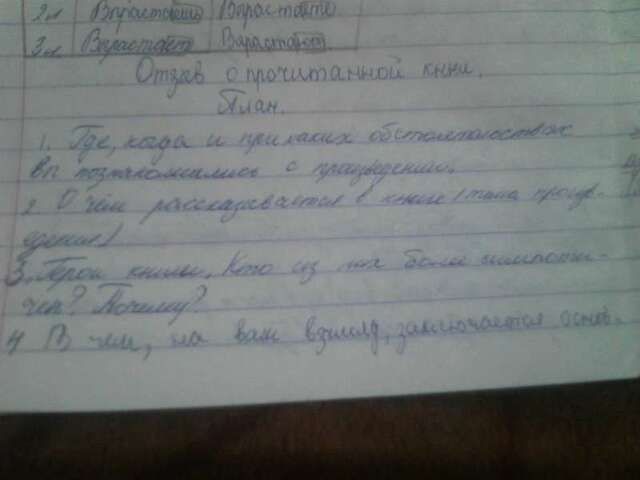 2л Врастаешь Врастаете
3л Врастает Врастают
Отзыв о прочитанной книи.
План.
1. Где, когда и при каких обстоятельствах
вы познакомились с произведению.
2 О чём рассказывается в книге (тема произв-
едения)
3. Герои книги. Кто из них более симпати-
чен? Почему?
4 В чем, на ваш взгляд, заключается основ-